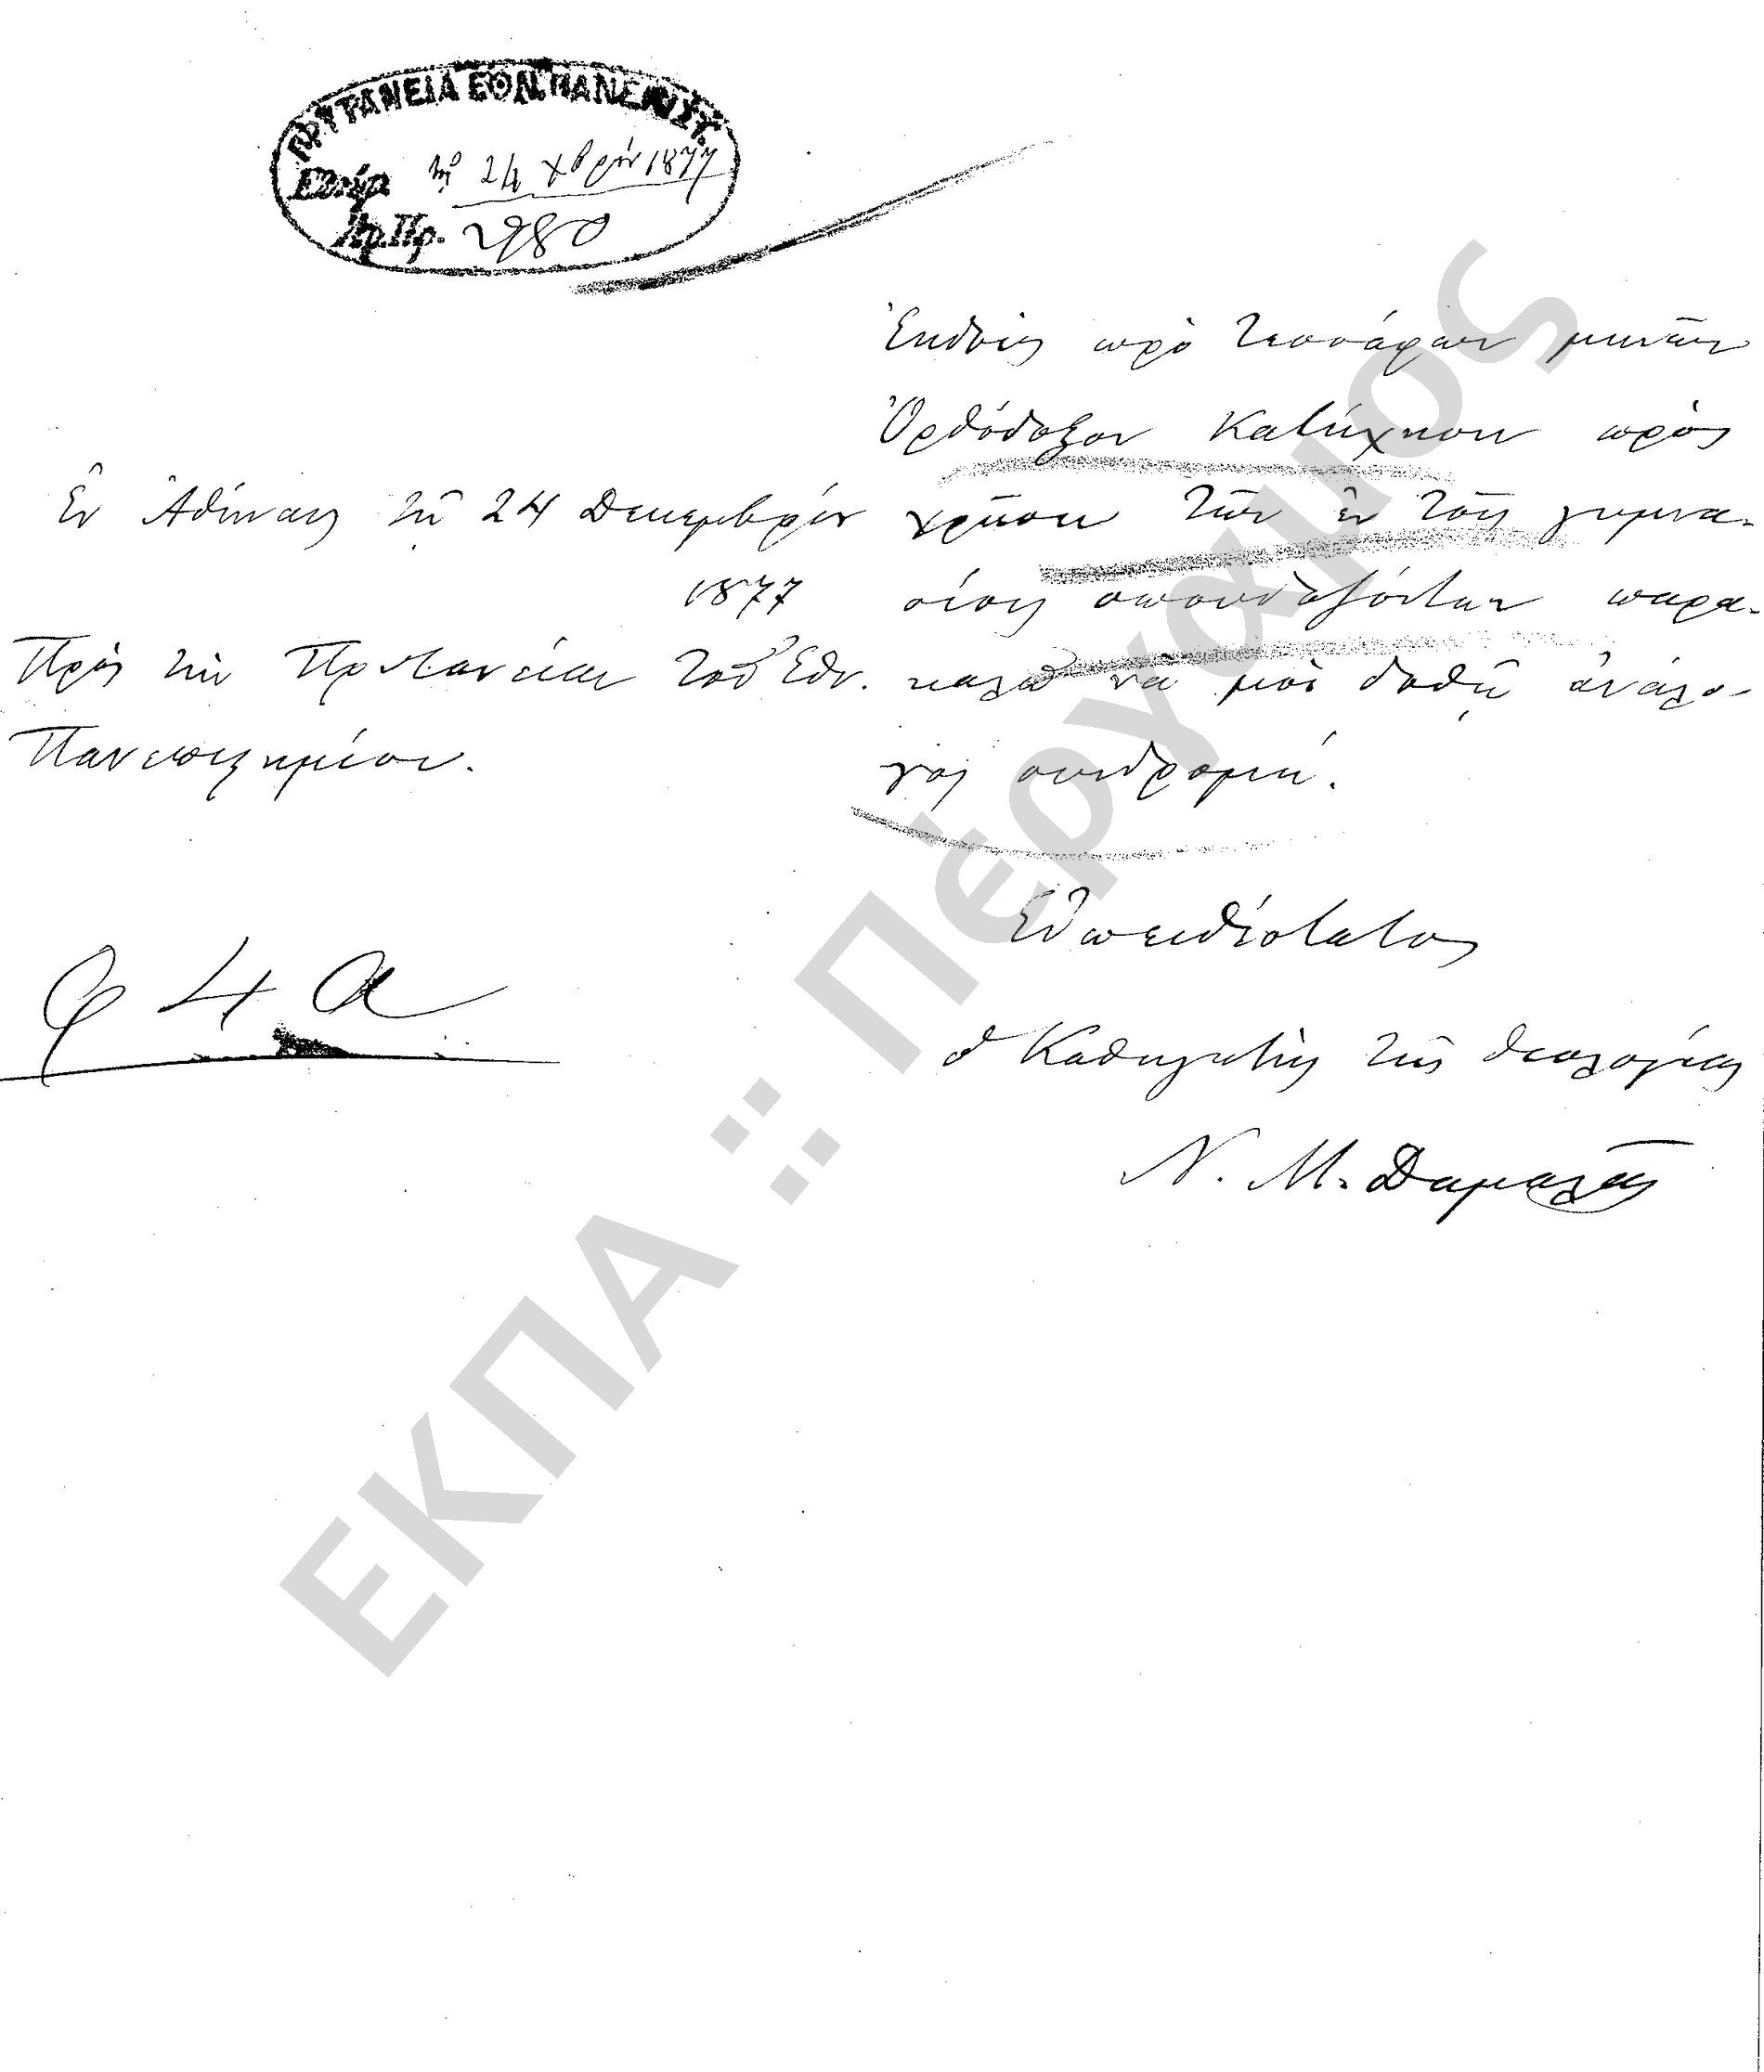 ΠΡΥΤΑΝΕΙΑ ΕΘΝ. ΠΑΝΕΠΙΣΤ.
Ἐλήφ. τῇ 24 Χβρίου 1877
Ἀρ. Πρ. 2980
Ἐν Ἀθήναις τῇ 24 Δεκεμβρίου
1877
Πρὸς τὴν Πρυτανείαν τοῦ Ἐθν.
Πανεπιστημίου.
φ 4 α
Ἐκδοὺς πρὸ τεσσάρων μηνῶν
Ὀρθόδοξον Κατήχησιν πρὸς
χρῆσιν τῶν ἐν τοῖς γυμνα-
σίοις σπουδαζόντων παρα-
καλῶ νὰ μοὶ δοθῇ ἀνάλο-
γος συνδρομή.
Εὐπειθέστατος
ὁ Καθηγητὴς τῆς θεολογίας
Ν. Μ. Δαμαλᾶς
ΕΚΠΑ :: Πέργαμος